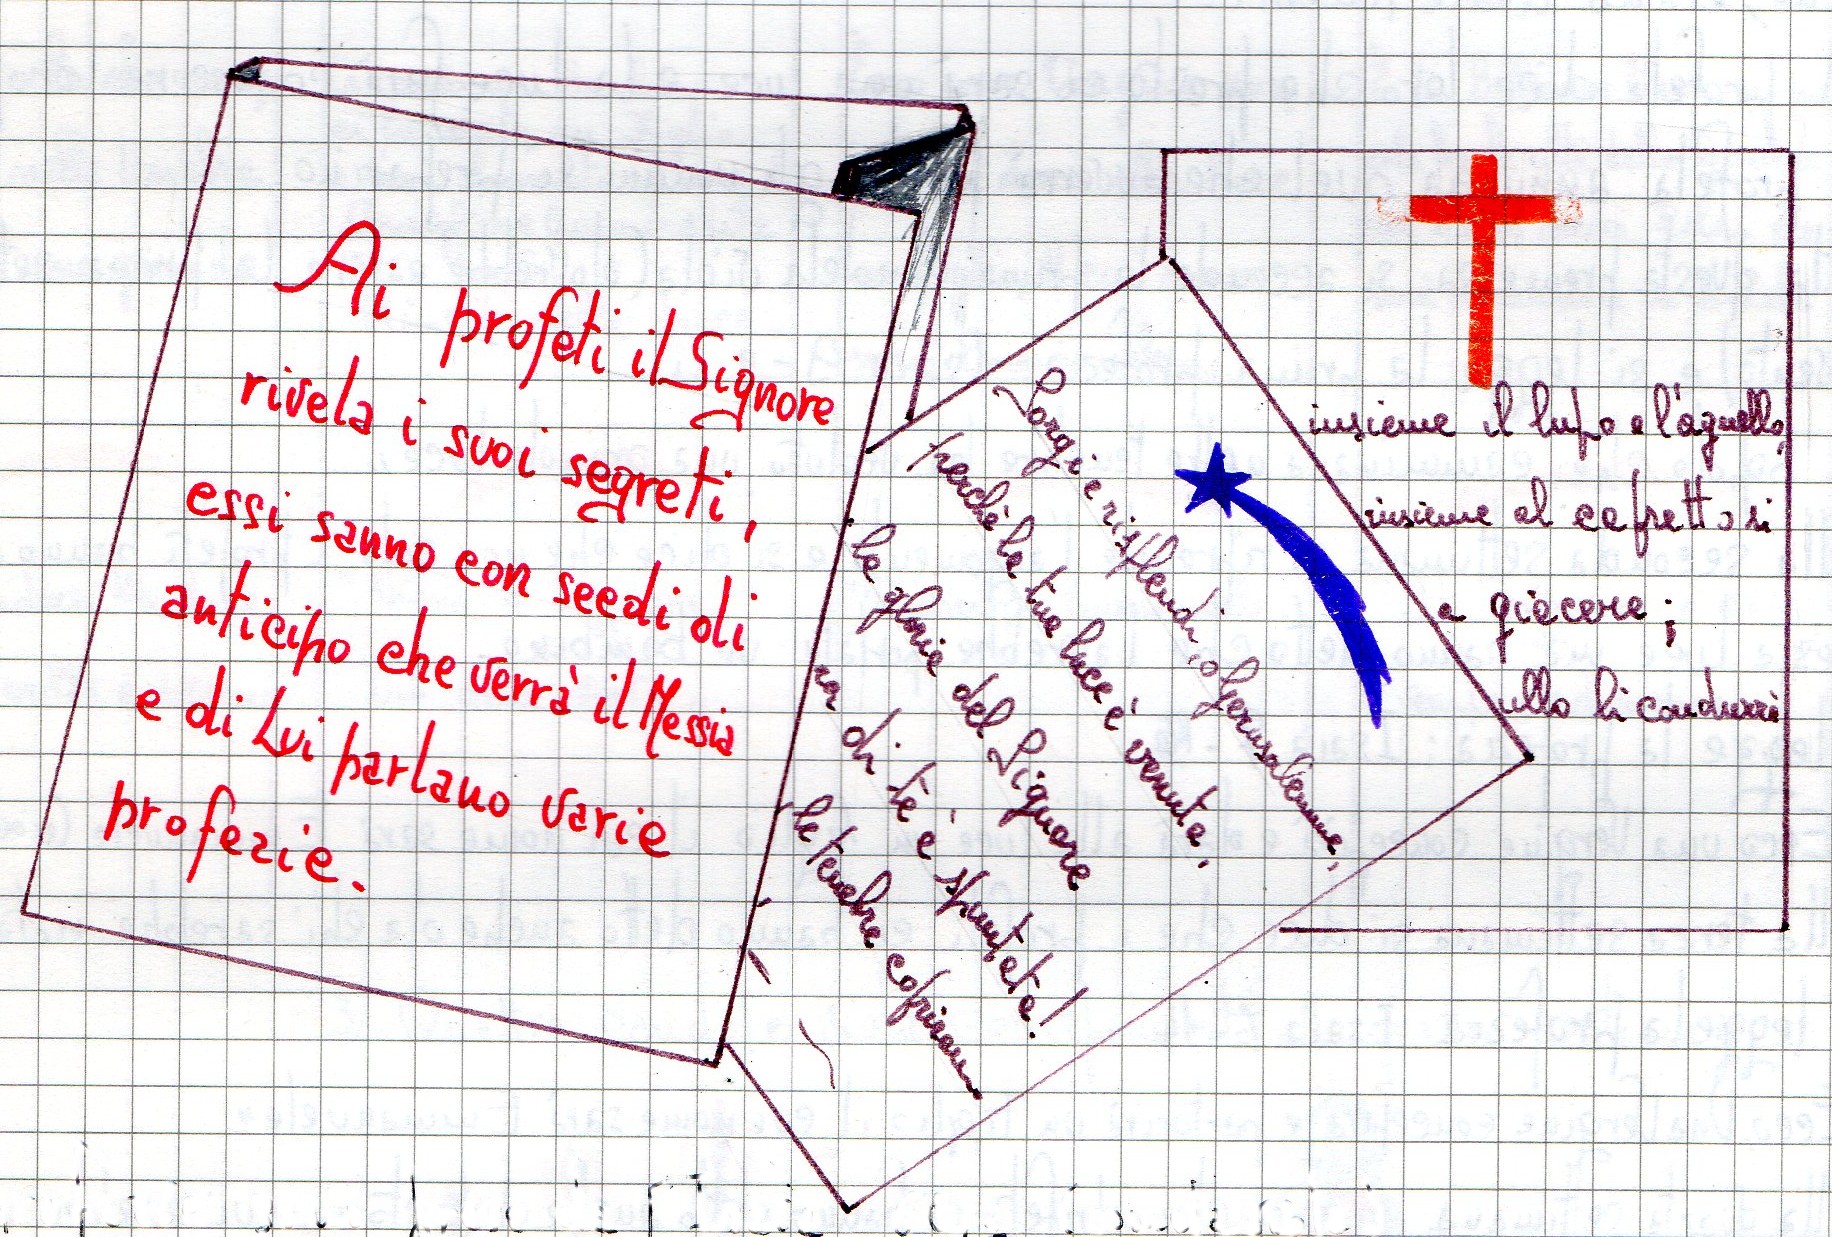 Ai profeti il Signore
rivela i suoi segreti,
essi sanno con secoli di
anticipo che verrà il Messia
e di Lui parlano varie
profezie.
Sorgi e risplendi, o Gerusalemme,
perché la tua luce è venuta,
la gloria del Signore
di te è spuntata!
le tenebre coprirann
insieme il lupo e l'agnello,
insieme al capretto si
a giacere;
ullo li condurrà